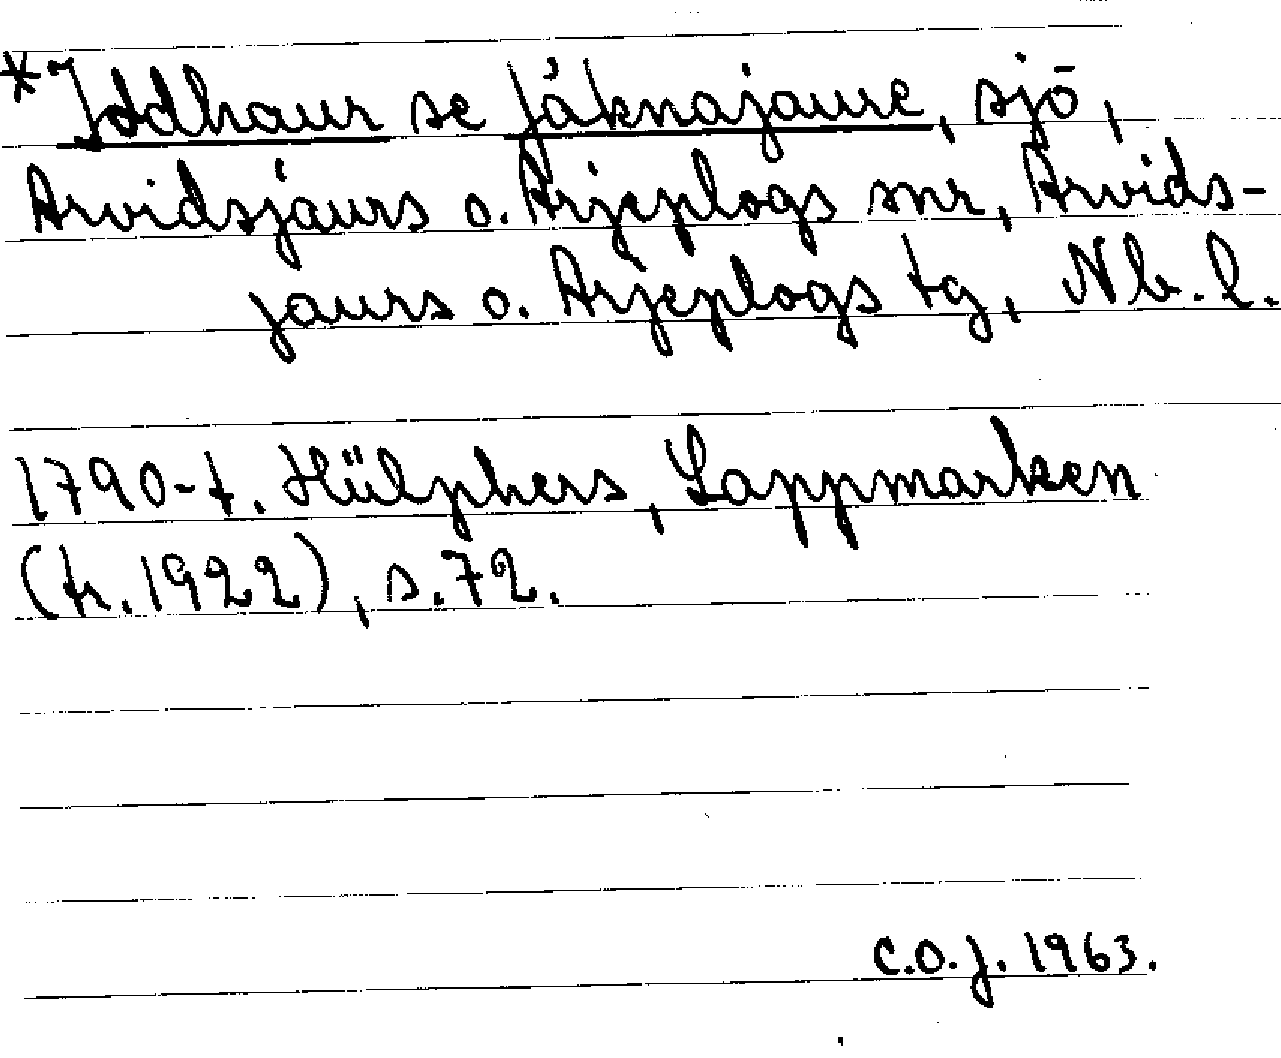 *Jddhaur se Jáknajaure, sjö,
Arvidsjaurs o. Arjeplogs snr, Arvids-
jaurs o. Arjeplogs tg, Nb. l.
1790-t. Hülphers, Lappmarken
(tr. 1922), s. 72.
C.O.J. 1963.